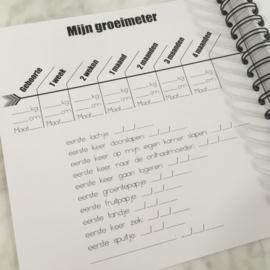 Mijn groeimeter
Geboorte 1 week 2 weken 1 maand 2 maanden 3 maanden 4 maanden
__kg __kg __kg __kg __kg __kg __kg
__cm __cm __cm __cm __cm __cm __cm
Maat__ Maat__ Maat__ Maat__ Maat__ Maat__ Maat__
eerste lachje: __/__/__
eerste keer doorslapen: __/__/__
eerste keer op mijn eigen kamer slapen: __/__/__
eerste keer naar de onthaalmoeder: __/__/__
eerste keer gaan logeren: __/__/__
eerste groentepapje: __/__/__
eerste fruitpapje: __/__/__
eerste tandje: __/__/__
eerste keer ziek: __/__/__
eerste spuitje: __/__/__
______ : __/__/__